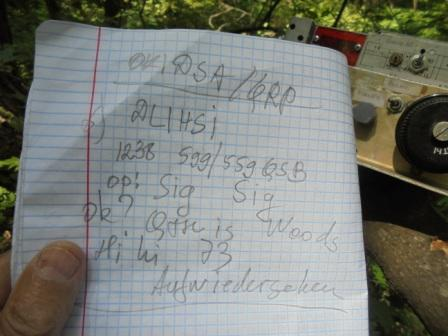 OK1DSA/QRP
DL1HSI
1238 599/559 QSB
op: Sig Sig
Ok? Qth is Woods
Hi hi 73
Aufwiedersehen